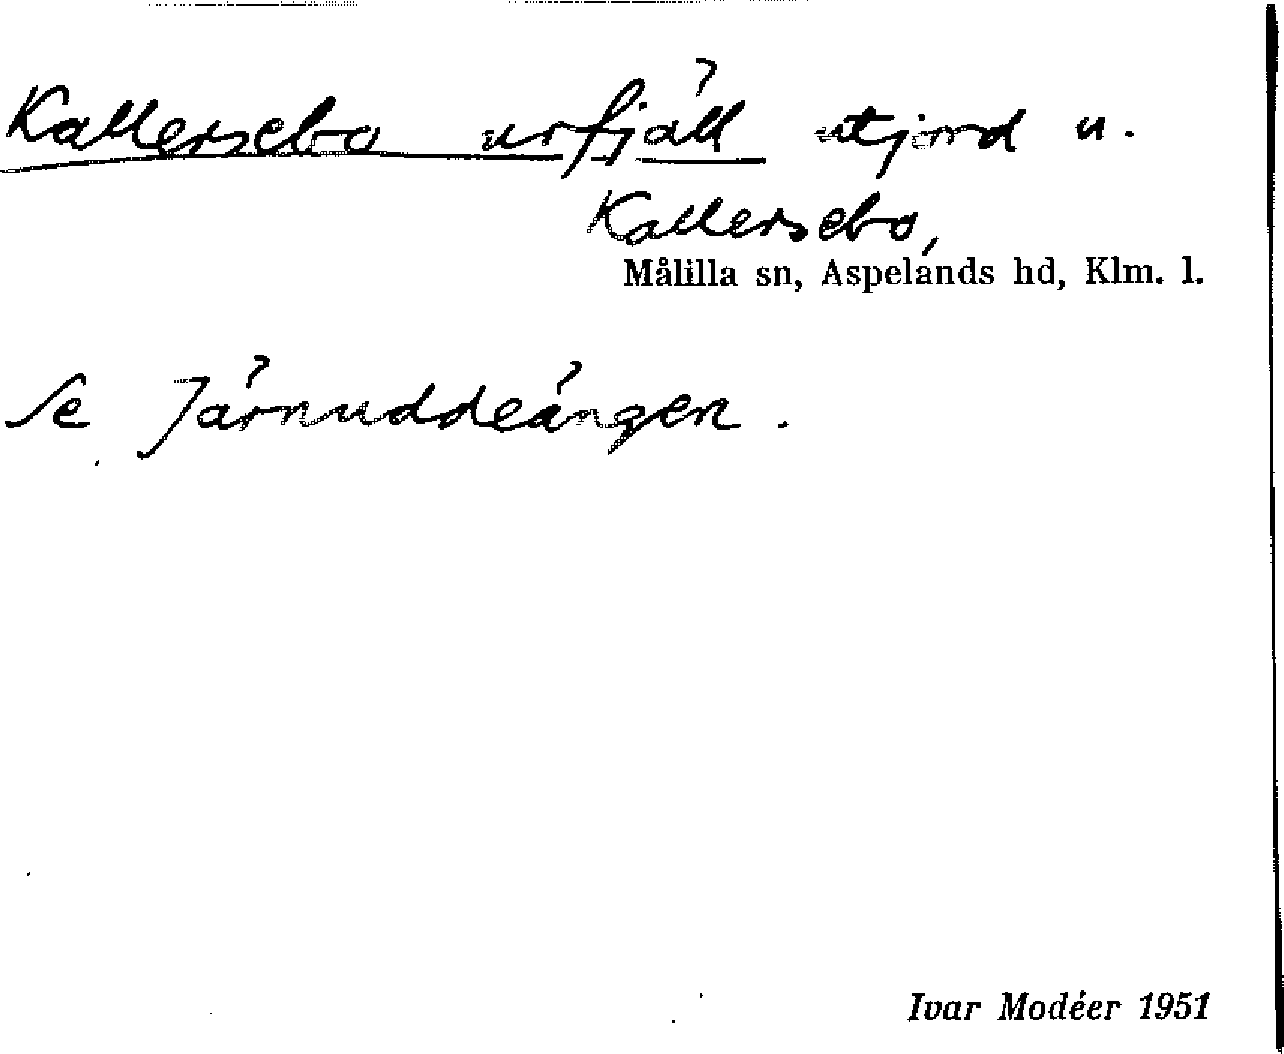 Kallersebo urfjäll utjord u.
Kallersebo,
Målilla sn, Aspelands hd, Klm. l.
Se Järnuddeängen.
Ivar Modéer 1951